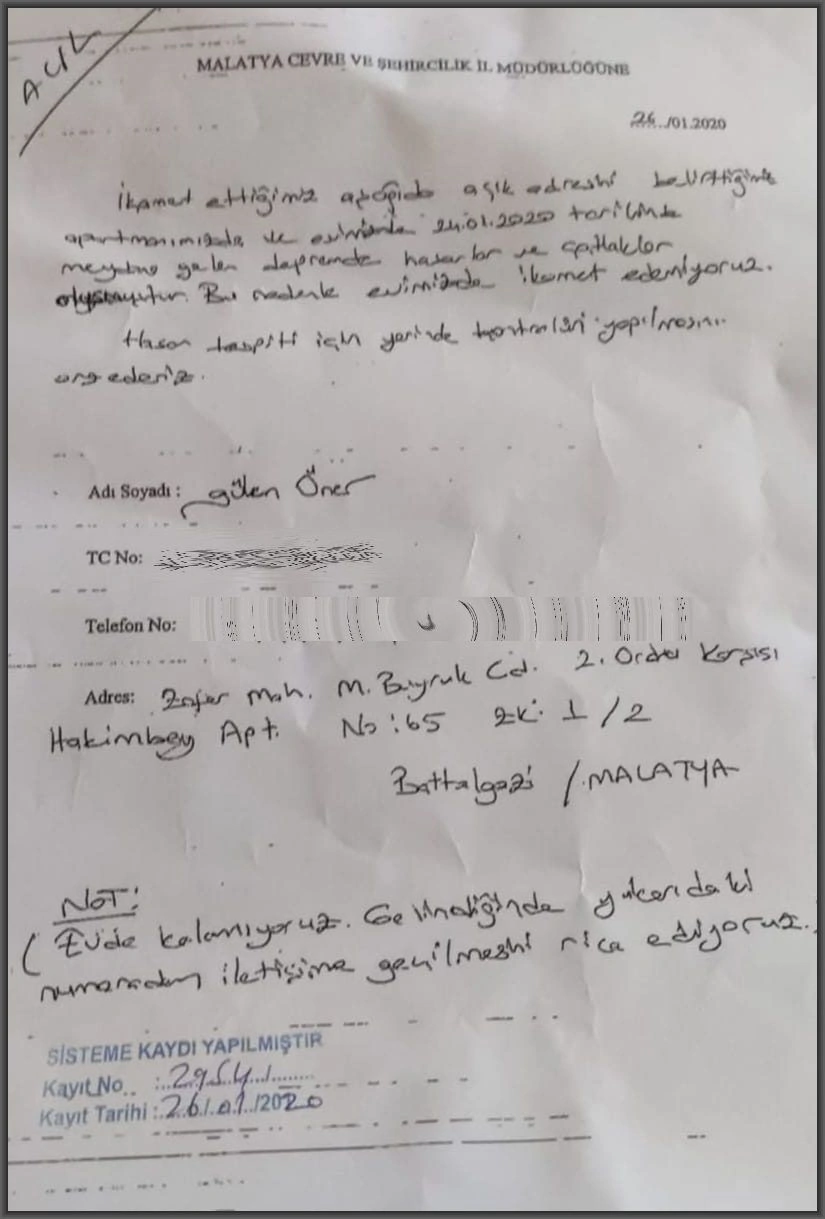 ACİL
MALATYA ÇEVRE VE ŞEHİRCİLİK İL MÜDÜRLÜĞÜNE
26../01.2020
İkamet ettiğimiz aşağıda açık adresini belirttiğimiz
apartmanımızda ve evimizde 24.01.2020 tarihinde
meydana gelen depremde hasarlar ve çatlaklar
oluşmuştur. Bu nedenle evimizde ikamet edemiyoruz.
Hasar tespiti için yerinde kontrolün yapılmasını
arz ederiz.
Adı Soyadı : Gülen Öner
TC No:
Telefon No:
Adres: Zafer Mah. M. Buyruk Cd. 2. Ordu Karşısı
Hakimbey Apt. No:65 2K: 1/2
Battalgazi / MALATYA
NOT:
( Evde kalamıyoruz. Gelindiğinde yukarıdaki
numaradan iletişime geçilmesini rica ediyoruz.
SİSTEME KAYDI YAPILMIŞTIR
Kayıt No : 2954
Kayıt Tarihi : 26/01/2020